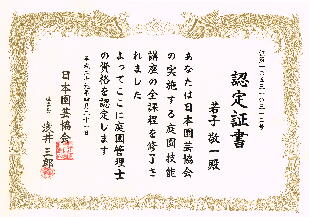 認定証書
若子 敬一殿
あなたは日本園芸協会
の実施する庭園技能
講座の全課程を修了さ
れました
よってここに庭園管理士
の資格を認定します
平成二十九年四月二十一日
日本園芸協会
浅井 三郎